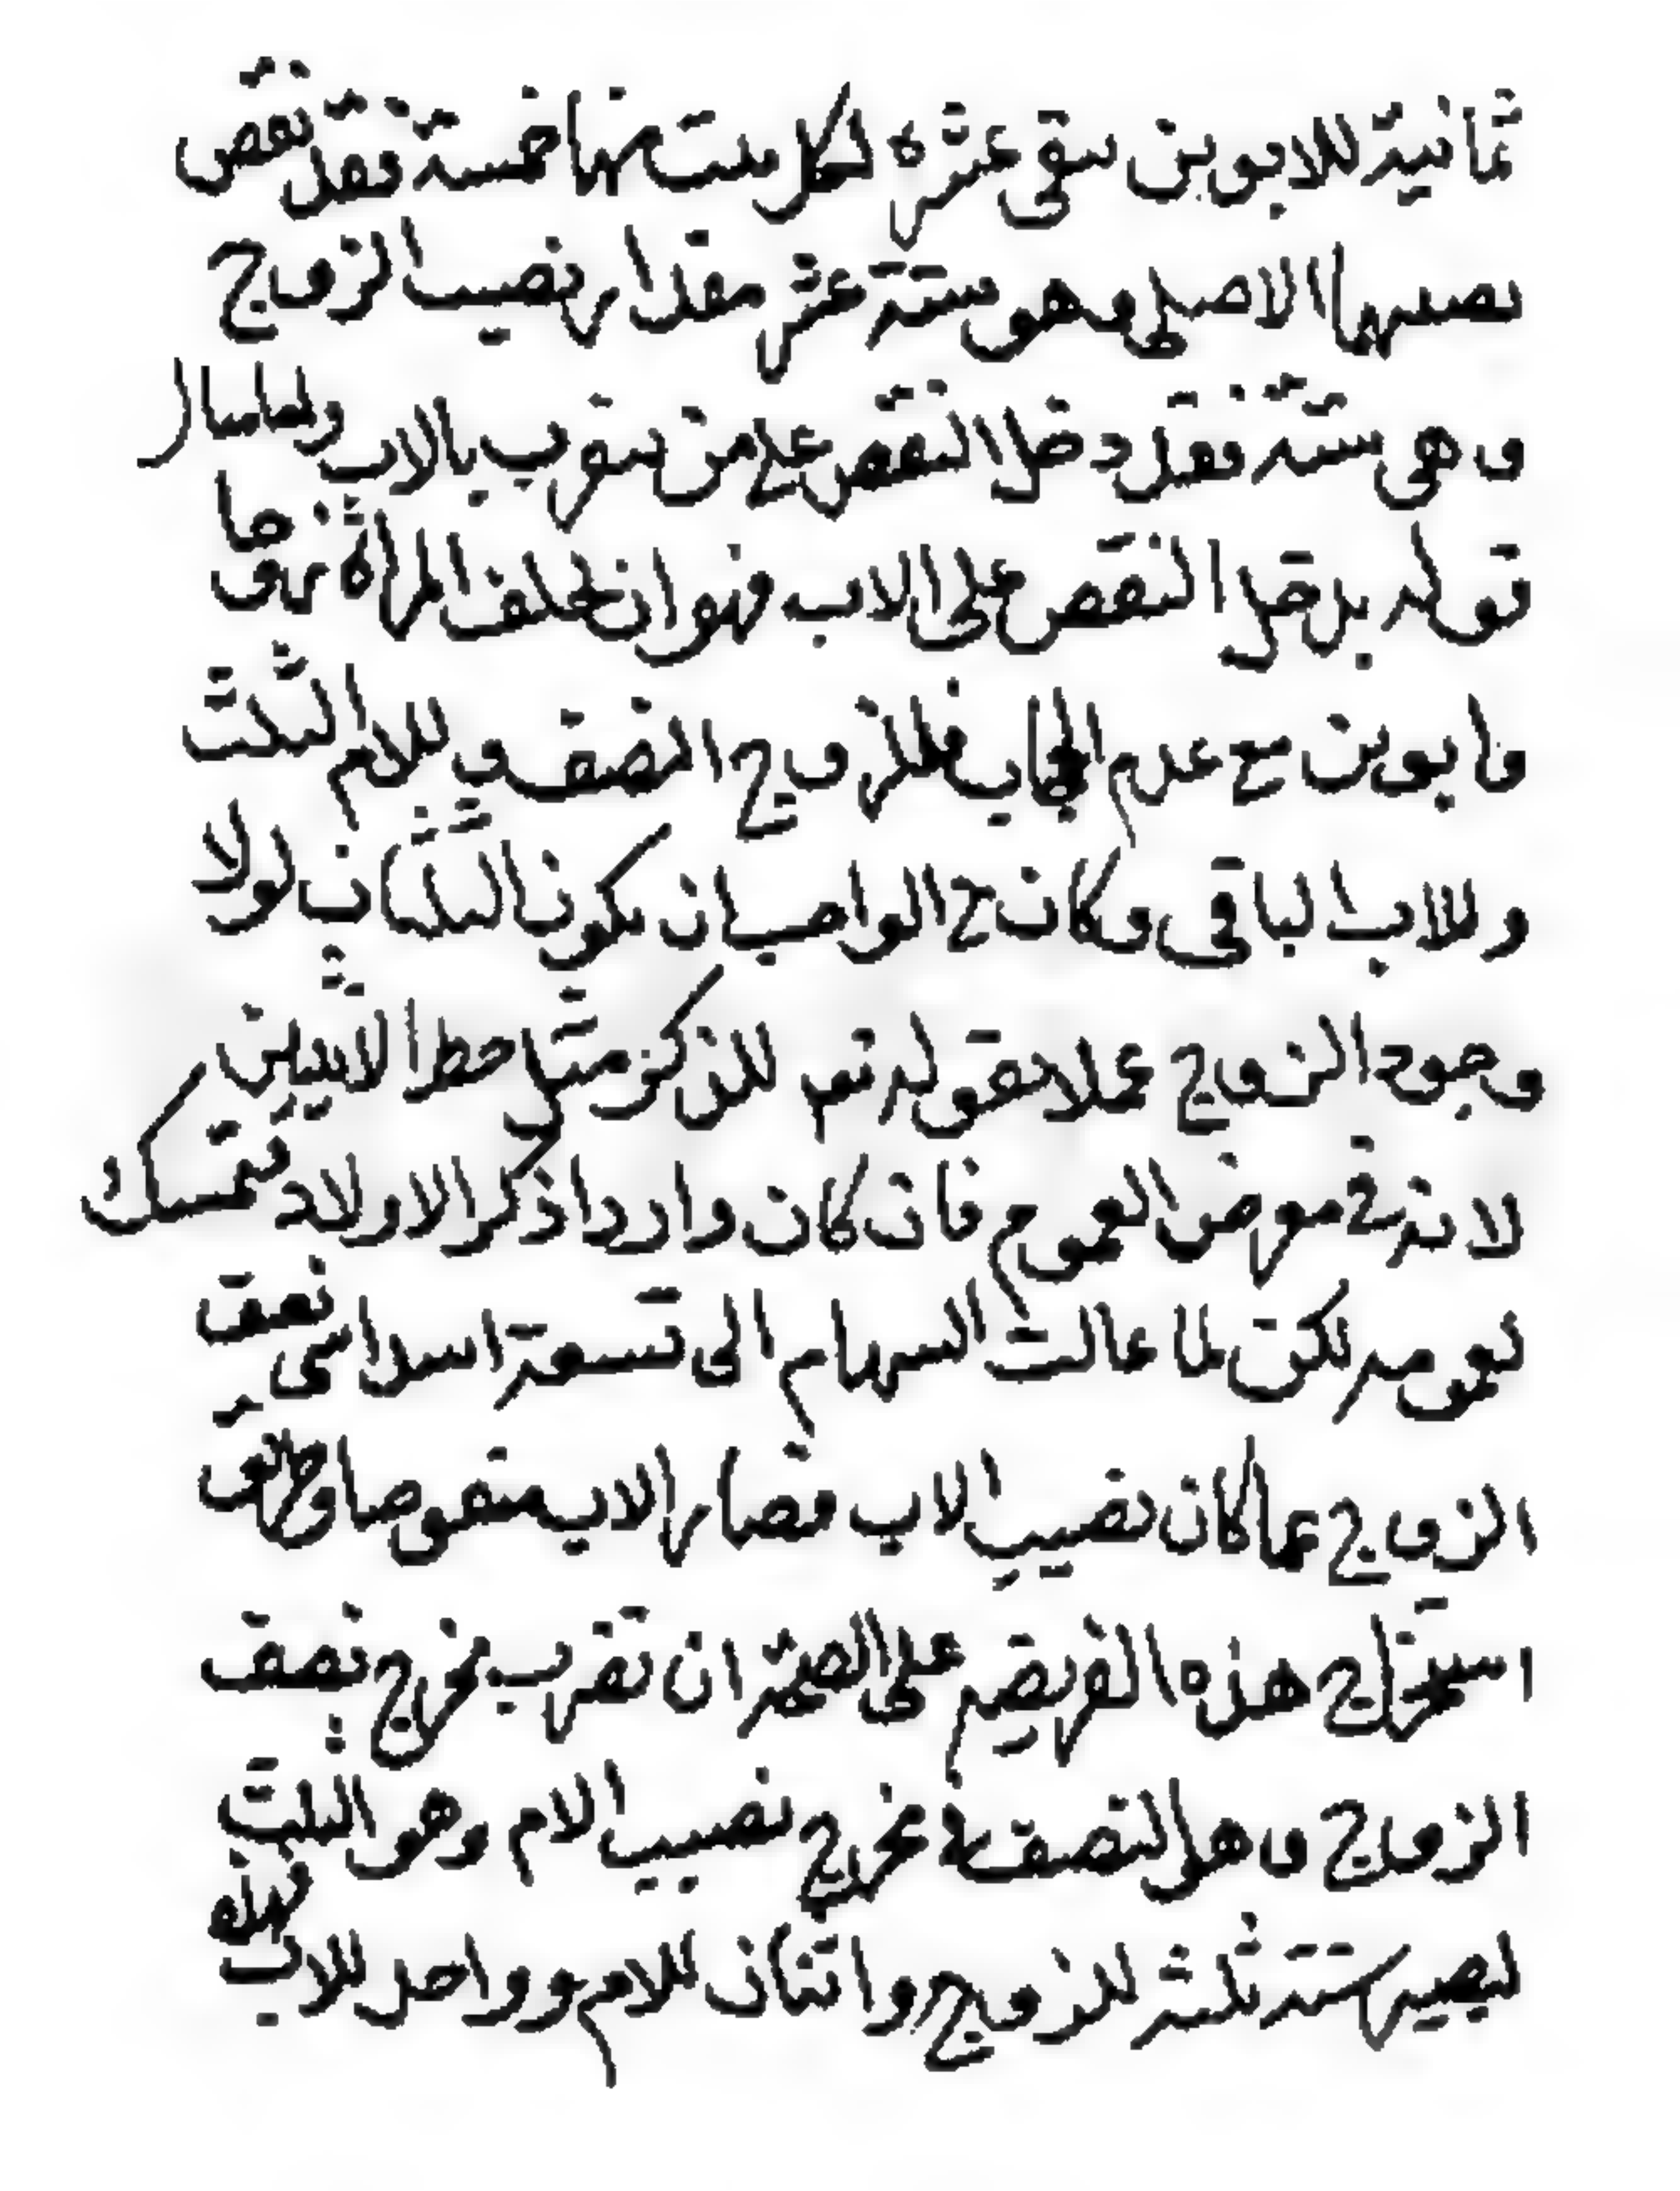 ثمانية للابوين يبقى عشرة لكل بنت منها خمسة فقد نقص
نصيبها الاصلي وهو ستة عشر مقدار نصيب الزوج
وهي ستة فقد دخل النقص على من يتقرب بالاب
قوله يدخل النقص على الاب فهو ان تخلف المراة زوجا
وابوين مع عدم الحجاب فللزوج النصف وللام الثلث
وللاب الباقي وكان ح الواجب ان يكون الثلثان لولا
وجود الزوج عملا بقوله تعم للذكر مثل حظ الانثيين
لانه في معرض العموم فان كان واردا ذكر الاولاد يتمسك
بعمومه لكن لما عالت السهام الى تسعة اسداس نقص
الزوج عما كان نصيب الاب فصار الاب منقوصا وطريق
استخراج هذه الفريضة على الصحة ان تضرب مخرج نصف
الزوج وهو النصف في مخرج نصيب الام وهو الثلث
ليصير ستة ثلثة للزوج واثنان للام وواحد للاب